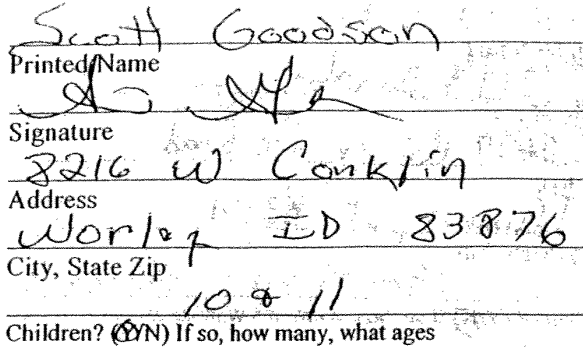 Scott Goodson
Printed Name
Signature
8216 W Conklin
Address
Worley ID 83876
City, State Zip
10 & 11
Children? (Y/N) If so, how many, what ages